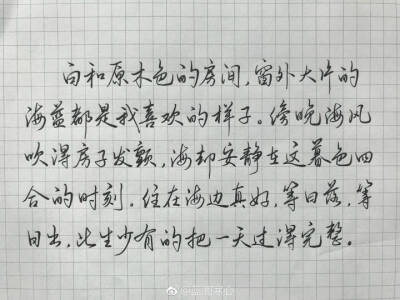 白和原木色的房间,窗外大片的
海蓝都是我喜欢的样子。傍晚海风
吹得房子发颤,海却安静在这暮色四
合的时刻。住在海边真好,等日落,等
日出,此生少有的把一天过得完整。